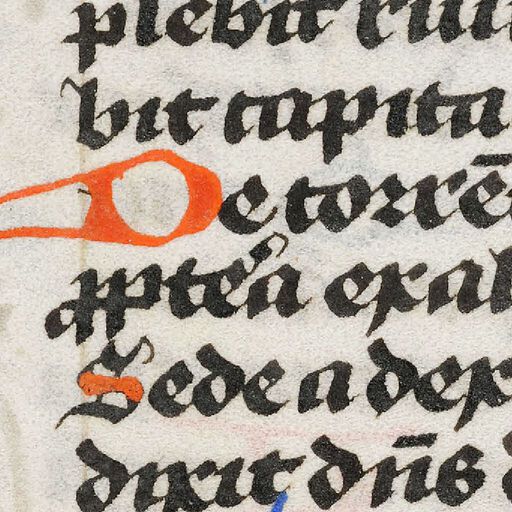 plebit ruin
bit capita
De torrē
ꝓpteᵃ exal
Sede a dex
dixit dn̄s d